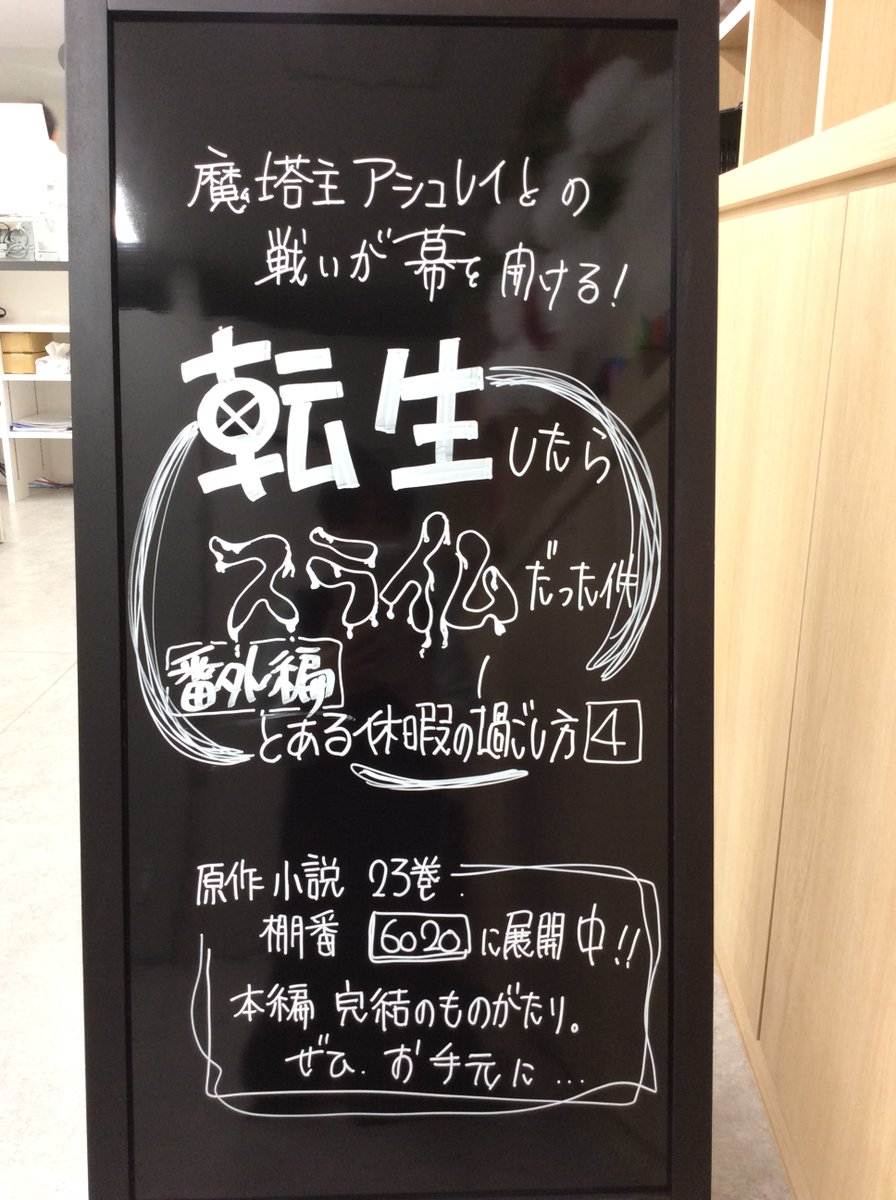 魔塔主アシュレイとの
戦いが幕を開ける!
転生したら
スライムだった件
番外編
とある休暇の過ごし方 4
原作小説 23巻
棚番 6020 に展開中!!
本編完結のものがたり。
ぜひ お手元に...